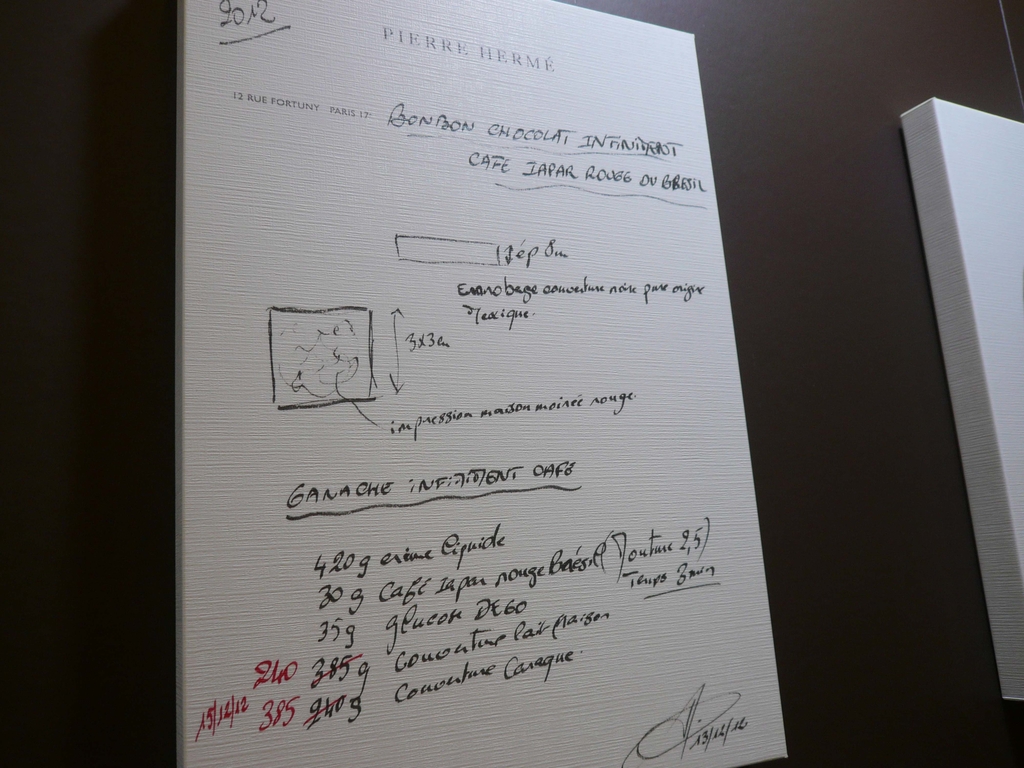 2012
PIERRE HERMÉ
12 RUE FORTUNY PARIS 17
BONBON CHOCOLAT INFINIMENT
CAFE IAPAR ROUGE DU BRESIL
ép 8m
Enrobage couverture noire pure origine
Mexique.
3x3cm
impression maison moirée rouge.
GANACHE INFINIMENT CAFE
420g crème liquide
30g Café Iapar rouge Brésil (Mouture 2,5)
Temps 3min
35g glucose DE60
240 385g Couverture lait Maison
13/12/12 385 240g Couverture Caraque.
13/12/12